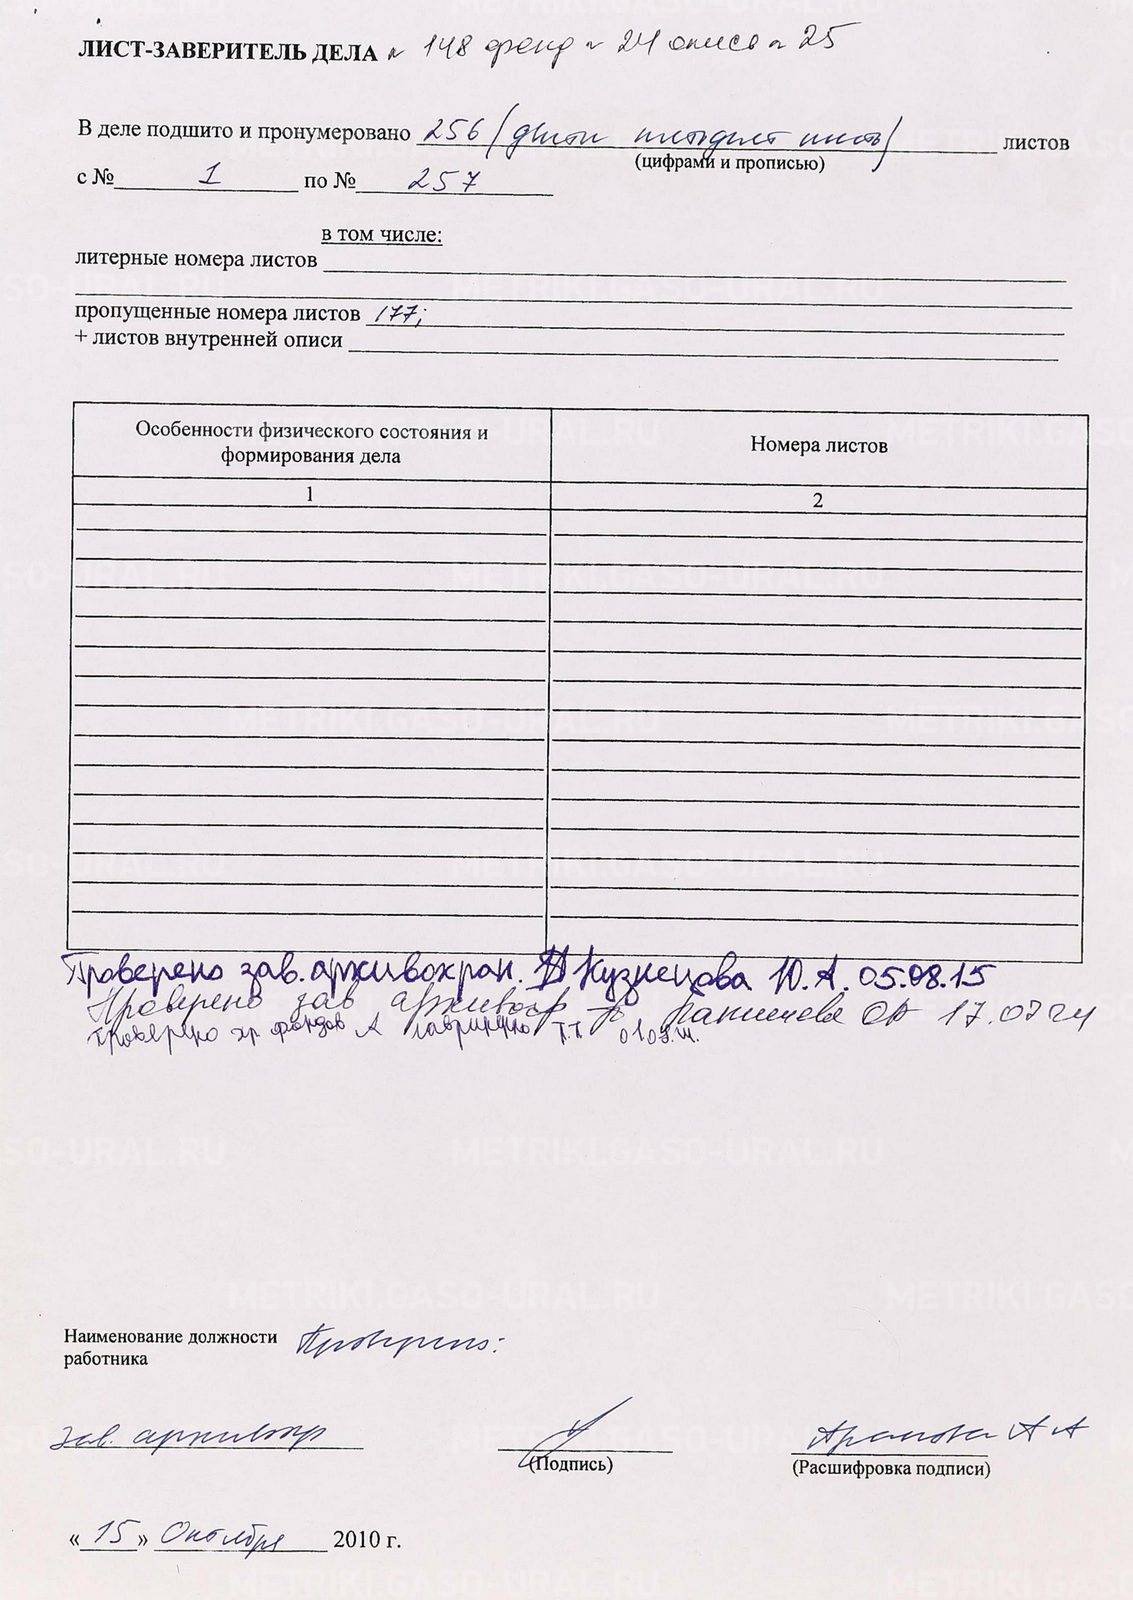 ЛИСТ-ЗАВЕРИТЕЛЬ ДЕЛА № 148 фонд № 24 опись № 25
В деле подшито и пронумеровано 256 (двести пятьдесят шесть) листов
(цифрами и прописью)
с № 1 по № 257
в том числе:
литерные номера листов
пропущенные номера листов 177;
+ листов внутренней описи
Особенности физического состояния и формирования дела
Номера листов
1 2
Проверено зав. архивохран. Кузнецова Ю.А. 05.08.15
Проверено зав архивохр 17.07
Проверено хр фондов Т.
Наименование должности Проверено:
работника
зав. архивохр
(Подпись) (Расшифровка подписи)
«15» Октября 2010 г.
METRIKI.GASO-URAL.RU